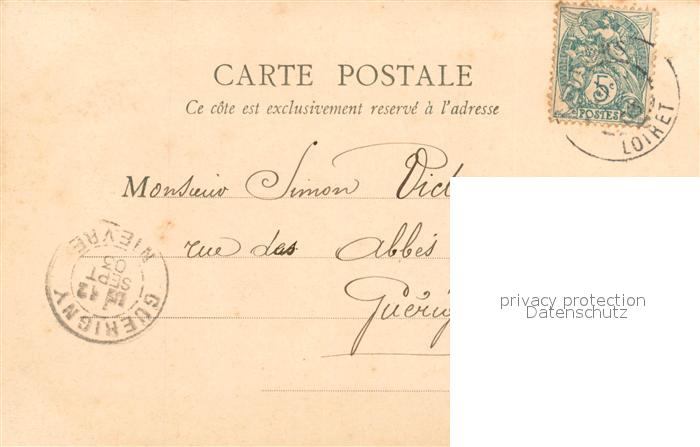 CARTE POSTALE
Ce côte est exclusivement reservé à l'adresse
5c
POSTES
LOIRET
Monsieur Simon Vict
rue das Abbés
Guérig
GUERIGNY
12
SEPT
03
NIEVRE
privacy protection
Datenschutz